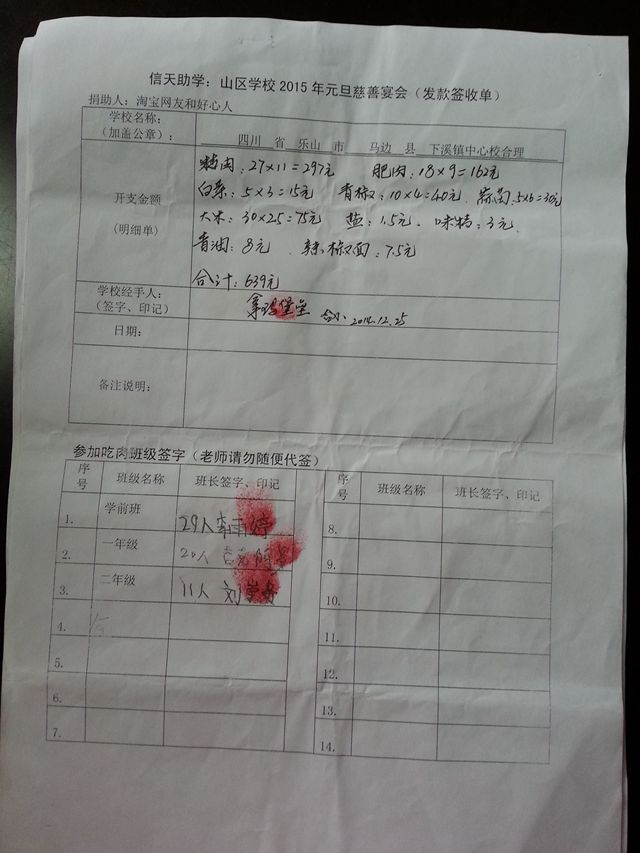 信天助学：山区学校 2015 年元旦慈善宴会（发款签收单）
捐助人：淘宝网友和好心人
学校名称：
（加盖公章）：
四川 省 乐山 市 马边 县 下溪镇中心校合理
开支金额
(明细单)
精肉：27×11=297元 肥肉：18×9=162元
白菜：5×3=15元 青椒：10×4=40元 蒜苗：5×6=30元
大米：30×25=75元 盐：1.5元、味精：3元
青油：8元 辣椒面：7.5元
合计：639元
学校经手人：
（签字、印记）
2014.12.25
日期：
备注说明：
参加吃肉班级签字（老师请勿随便代签）
序号 班级名称 班长签字、印记 序号 班级名称 班长签字、印记
1. 学前班 29人 8.
2. 一年级 20人 9.
3. 二年级 11人 刘 10.
4. 11.
5. 12.
6. 13.
7. 14.